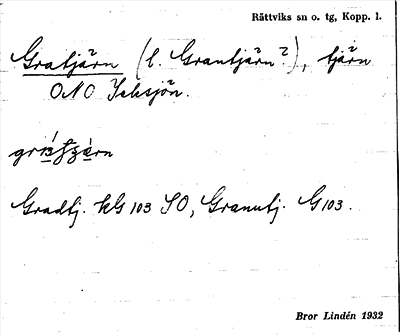 Rättviks sn o. tg, Kopp. l.
Gratjärn (l. Grantjärn?), tjärn
ONO Jeksjön.
Gradtj. kG 103 SO, Granutj. G 103.
Bror Lindén 1932